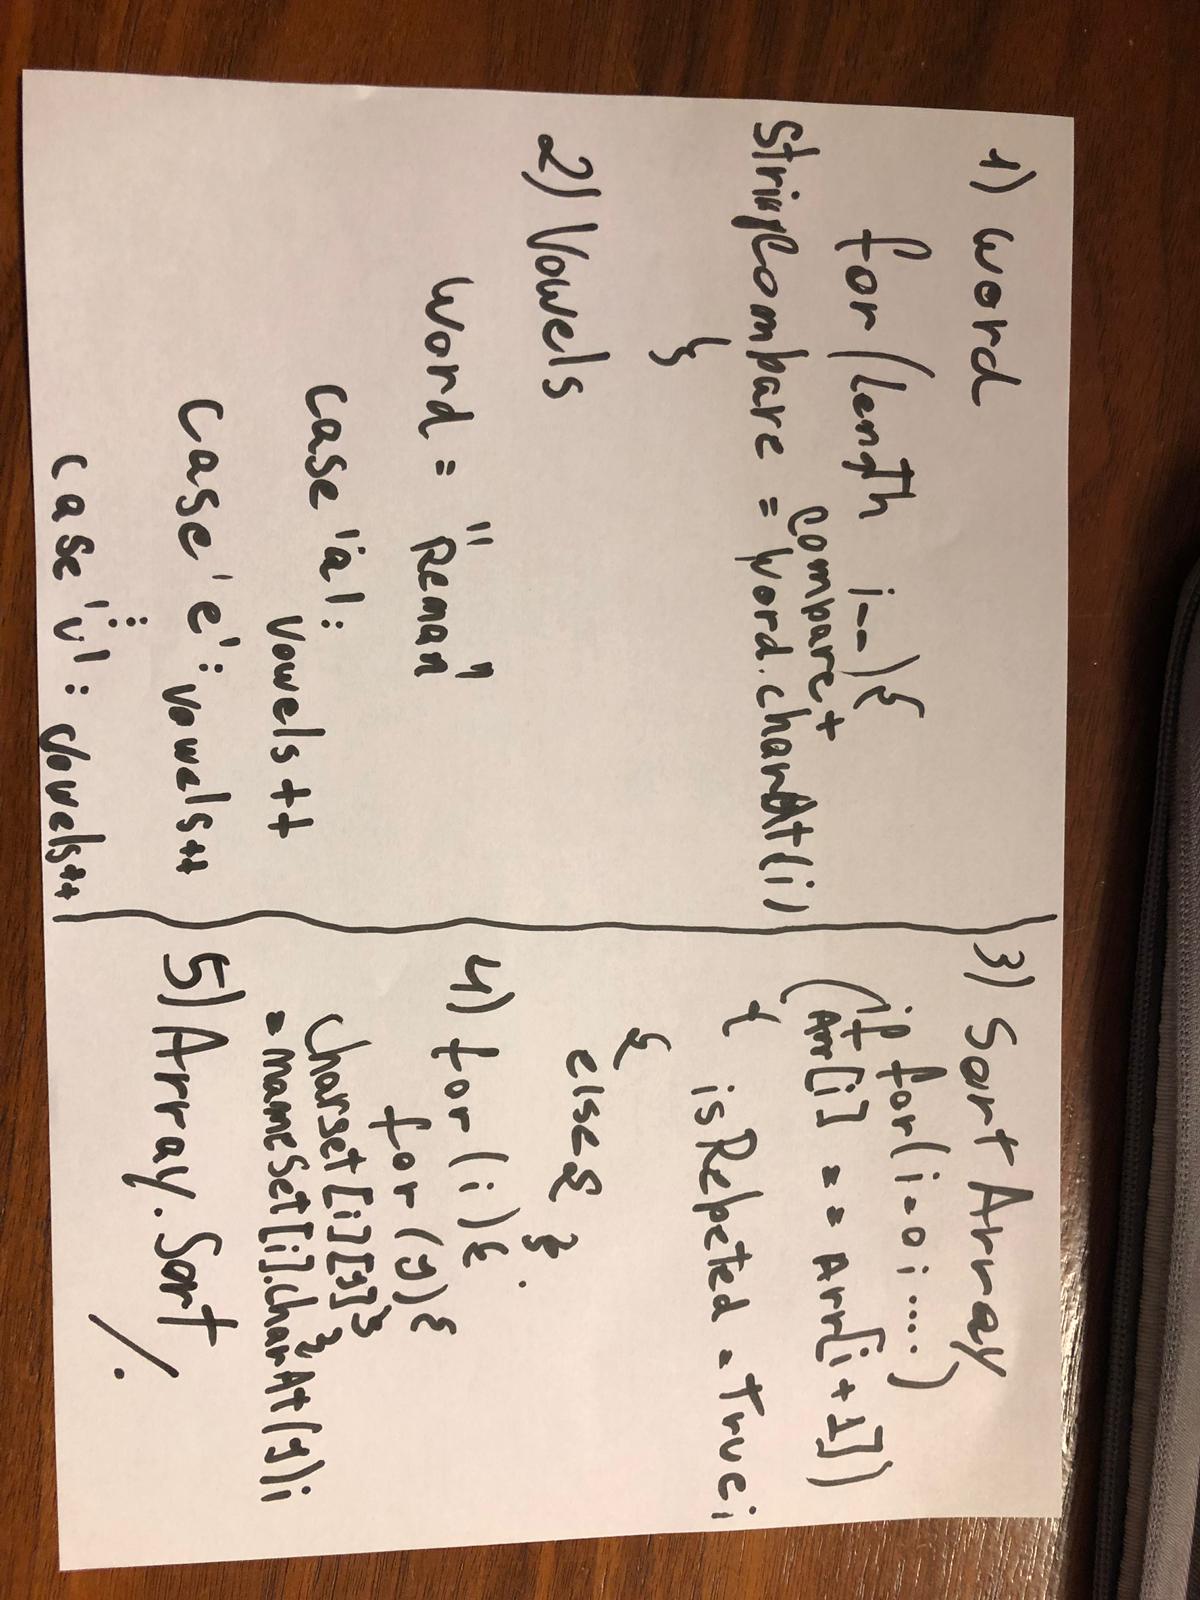 1) word
for (length i--) {
compare +
StringCombare = word.charAt(i)
}
2) Vowels
word = "Reman"
case 'a':
vowels++
case 'e': vowels++
⋮
case 'u': vowels++
3) Sort Array
for (i=0; .....)
(if
Arr[i] == Arr[i+1])
{ isRebeted = True;
}
else {
}.
4) for (i) {
for (y) {
Charset [i][y]
= nameSet[i].charAt(y);
}
}
5) Array.Sort